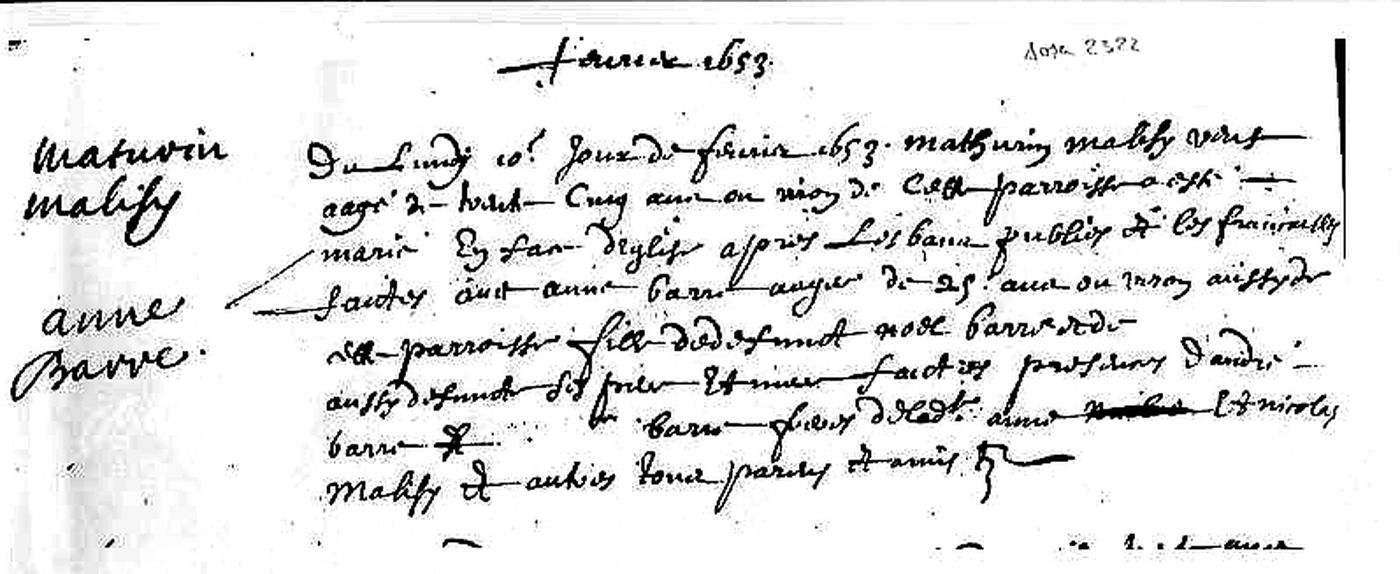 fevrier 1653
Maturin
Malisy
anne
Barre
Du Lundy 10e Jour de fevrier 1653. mathurin malisy veuf
aagé de trente Cinq ans ou viron de Cette parroisse a esté
marié En face d'eglise apres Les bans publies et les fiancailles
faictes avec anne barre aagee de 25 ans ou viron aussy de
cette parroisse fille de defunct noel barre et de
aussy defuncte ses pere Et mere faict es presences d'andré
barre et barre freres de ladte anne Et nicolas
Malisy et autres leurs parens et amis